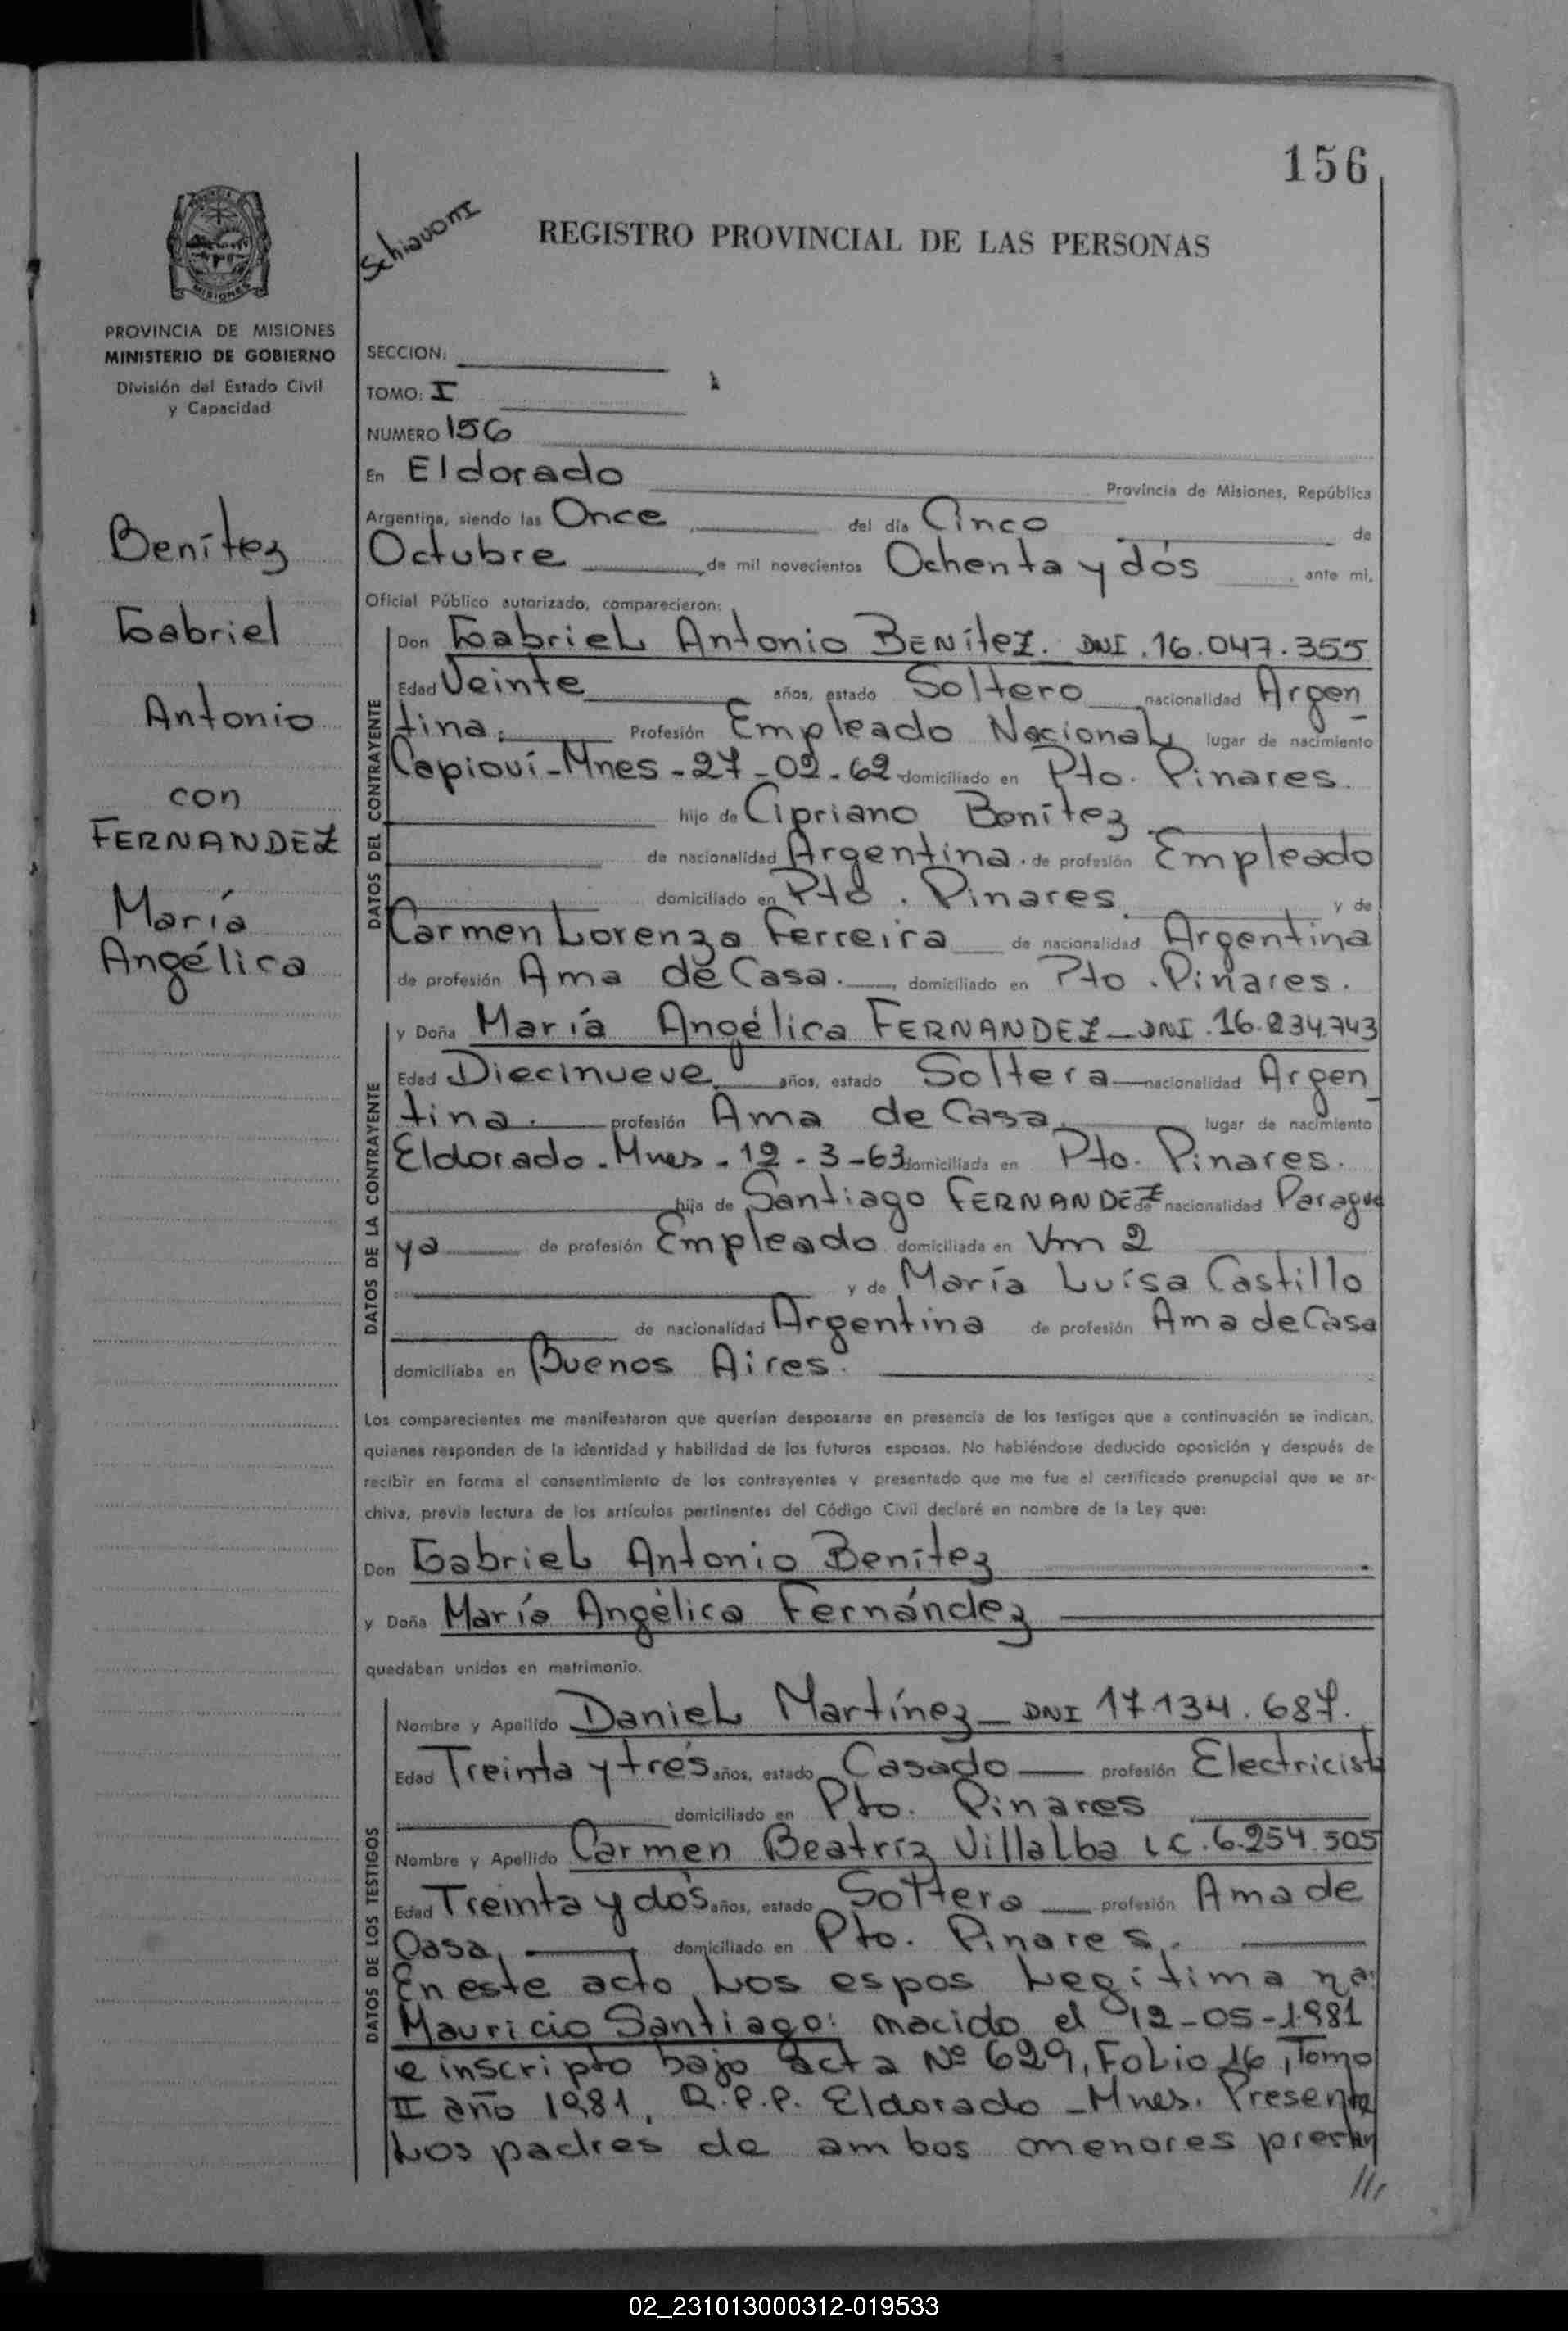 156
Schiavoni
REGISTRO PROVINCIAL DE LAS PERSONAS
MISIONES
PROVINCIA DE MISIONES
MINISTERIO DE GOBIERNO
División del Estado Civil
y Capacidad
Benítez
Gabriel
Antonio
con
FERNANDEZ
María
Angélica
SECCION:
TOMO: I
NUMERO 156
En Eldorado Provincia de Misiones, República
Argentina, siendo las Once del día Cinco de
Octubre de mil novecientos Ochenta y dós ante mi,
Oficial Público autorizado, comparecieron:
DATOS DEL CONTRAYENTE
Don Gabriel Antonio BENítez. DNI.16.047.355
Edad Veinte años, estado Soltero nacionalidad Argen
tina. Profesión Empleado Nacional lugar de nacimiento
Capioví-Mnes-27-02-62 domiciliado en Pto. Pinares.
hijo de Cipriano Benítez
de nacionalidad Argentina. de profesión Empleado
domiciliado en Pto. Pinares. y de
Carmen Lorenza Ferreira de nacionalidad Argentina
de profesión Ama de Casa. domiciliado en Pto. Pinares.
DATOS DE LA CONTRAYENTE
y Doña María Angélica FERNANDEZ-DNI.16.234.743
Edad Diecinueve años, estado Soltera nacionalidad Argen
tina. profesión Ama de Casa. lugar de nacimiento
Eldorado-Mnes-12-3-63 domiciliada en Pto. Pinares.
hija de Santiago FERNANDEZ de nacionalidad Paragua
ya de profesión Empleado domiciliada en Vm 2
y de María Luísa Castillo
de nacionalidad Argentina de profesión Ama de Casa
domiciliaba en Buenos Aires.
Los comparecientes me manifestaron que querían desposarse en presencia de los testigos que a continuación se indican,
quienes responden de la identidad y habilidad de los futuros esposos. No habiéndose deducido oposición y después de
recibir en forma el consentimiento de los contrayentes y presentado que me fue el certificado prenupcial que se ar-
chiva, previa lectura de los artículos pertinentes del Código Civil declaré en nombre de la Ley que:
Don Gabriel Antonio Benítez
y Doña María Angélica Fernández
quedaban unidos en matrimonio.
DATOS DE LOS TESTIGOS
Nombre y Apellido Daniel Martínez - DNI 17.134.687.
Edad Treinta y trés años, estado Casado profesión Electricista
domiciliado en Pto. Pinares
Nombre y Apellido Carmen Beatríz Villalba LC.6.254.505
Edad Treinta y dós años, estado Soltera profesión Ama de
Casa. domiciliado en Pto. Pinares.
En este acto Los espos Legítima na:
Mauricio Santiago: nacido el 12-05-1981
e inscripto bajo acta Nº 629, Folio 26, Tomo
II año 1981, R.P.P. Eldorado-Mnes. Presente
Los padres de ambos menores prestan
///
02_231013000312-019533